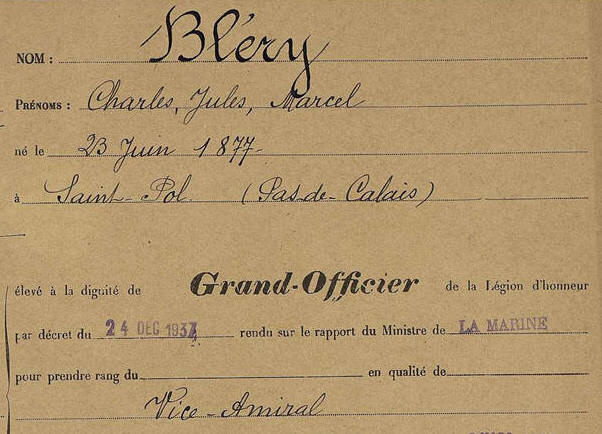 NOM : Bléry
PRÉNOMS : Charles, Jules, Marcel
né le 23 Juin 1877
à Saint-Pol (Pas-de-Calais)
élevé à la dignité de Grand-Officier de la Légion d'honneur
par décret du 24 DEC 1937 rendu sur le rapport du Ministre de LA MARINE
pour prendre rang du en qualité de
Vice-Amiral